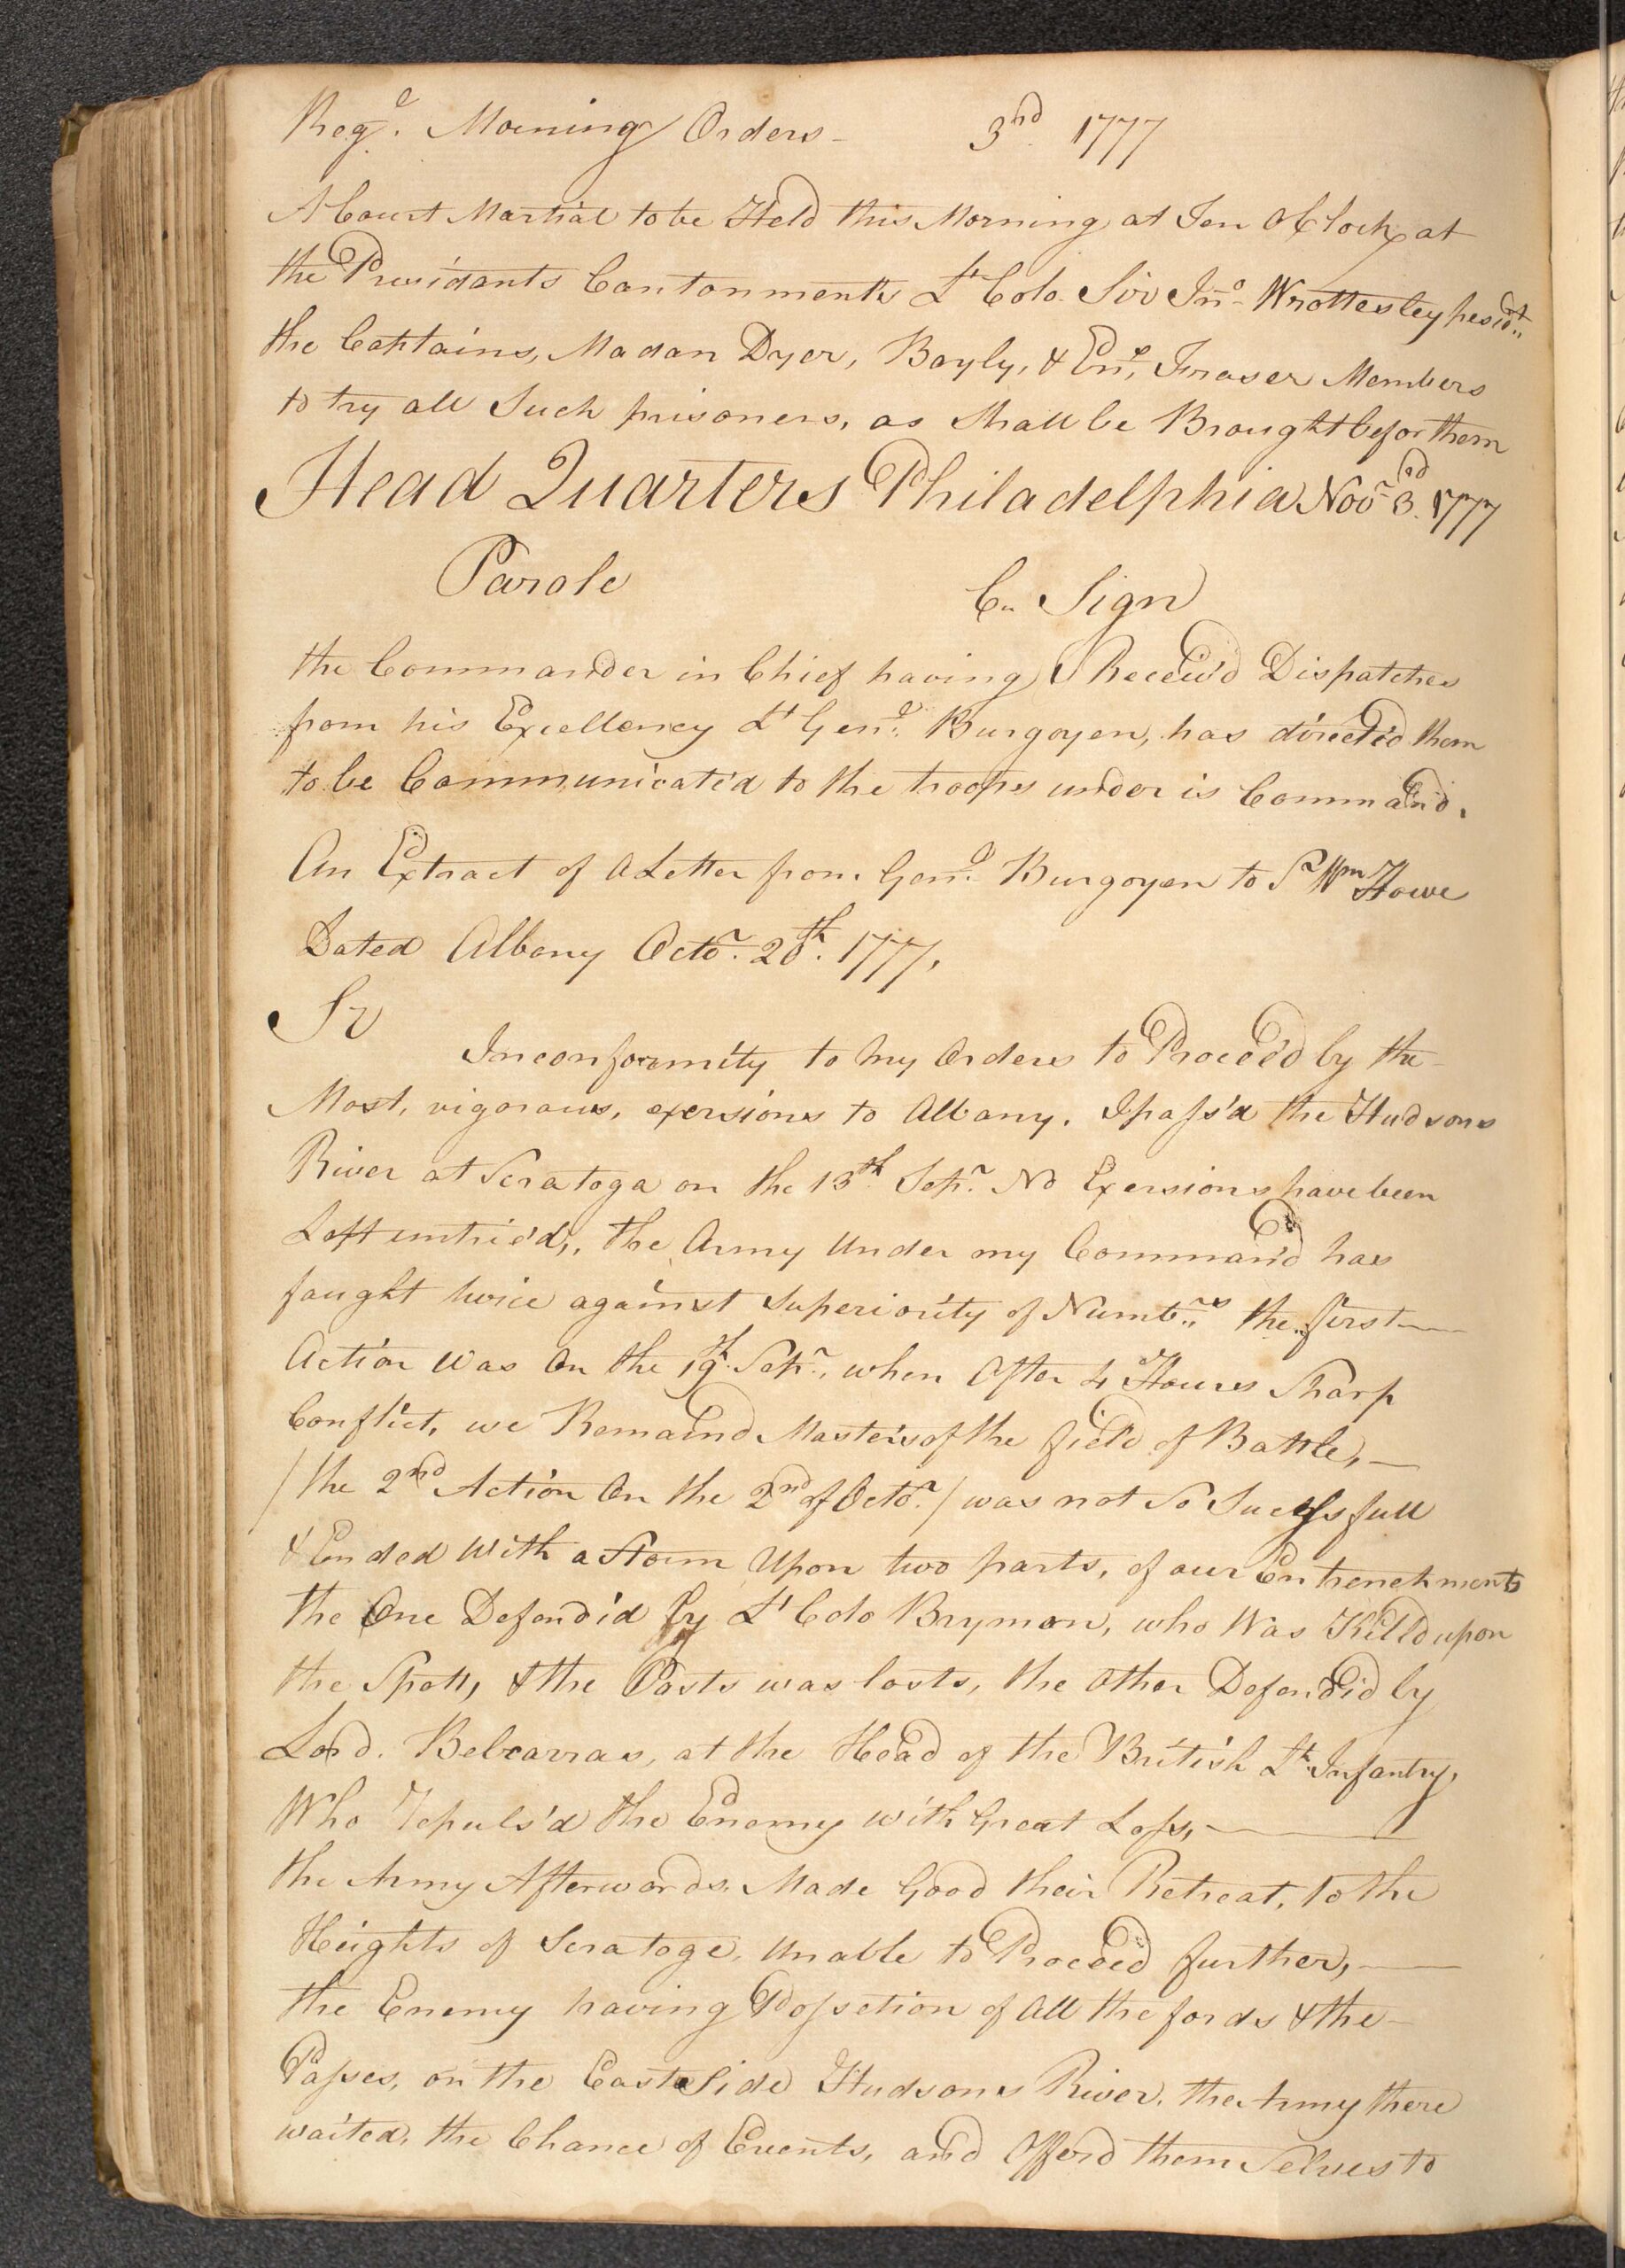 Regl. Morning Orders - 3rd 1777
A Court Martial to be Held this Morning at Ten OClock at
the Presidants Cantonments Lt Colo. Sir Jno. Wrottesley presidt.
the Captains, Madan Dyer, Bayly, & Ens. Fraser Members
to try all Such prisoners, as Shall be Brought befor them
Head Quarters Philadelphia Novr. 3rd 1777
Parole C. Sign
the Commander in Chief having Receiv'd Dispatches
from his Excellency Lt Genl. Burgoyen, has direct'd them
to be Communicate'd to the troops under is Command.
An Extract of a Letter from Genl. Burgoyen to Sr Wm Howe
Dated Albany Octor. 20th. 1777,
Sr
Inconformity to my Orders to Proceed by the
Most, vigoraus, exersions to Albany. I pass'd the Hudsons
River at Seratoga on the 13th Sepr. No Exersions have been
Left untrie'd,. the Army Under my Command has
faught twice against Superiority of Numbrs. the first
Action Was On the 19th. Sepr., when After 4 Hours Sharp
Conflict, we Remaind Masters of the field of Battle,
/ the 2nd Action On the 2nd of Octor. / was not So Sucessfull
& Ended With a Storm Upon two parts, of our Entrenchments
the One Defend'd by Lt Colo Bryman, who Was Killd upon
the Spott, & the Posts was losts, the Other Defendid by
Lord. Belcarras, at the Head of the British Lt. Infantry,
Who repuls'd the Enemy with Great Loss,
the Army Afterwards, Made Good their Retreat, to the
Heights of Seratoge, Unable to Proceed further,
the Enemy having Possetion of All the fords & the
Passes, on the East Side Hudsons River, the Army there
waited, the Chance of Events, and Offerd them Selves to